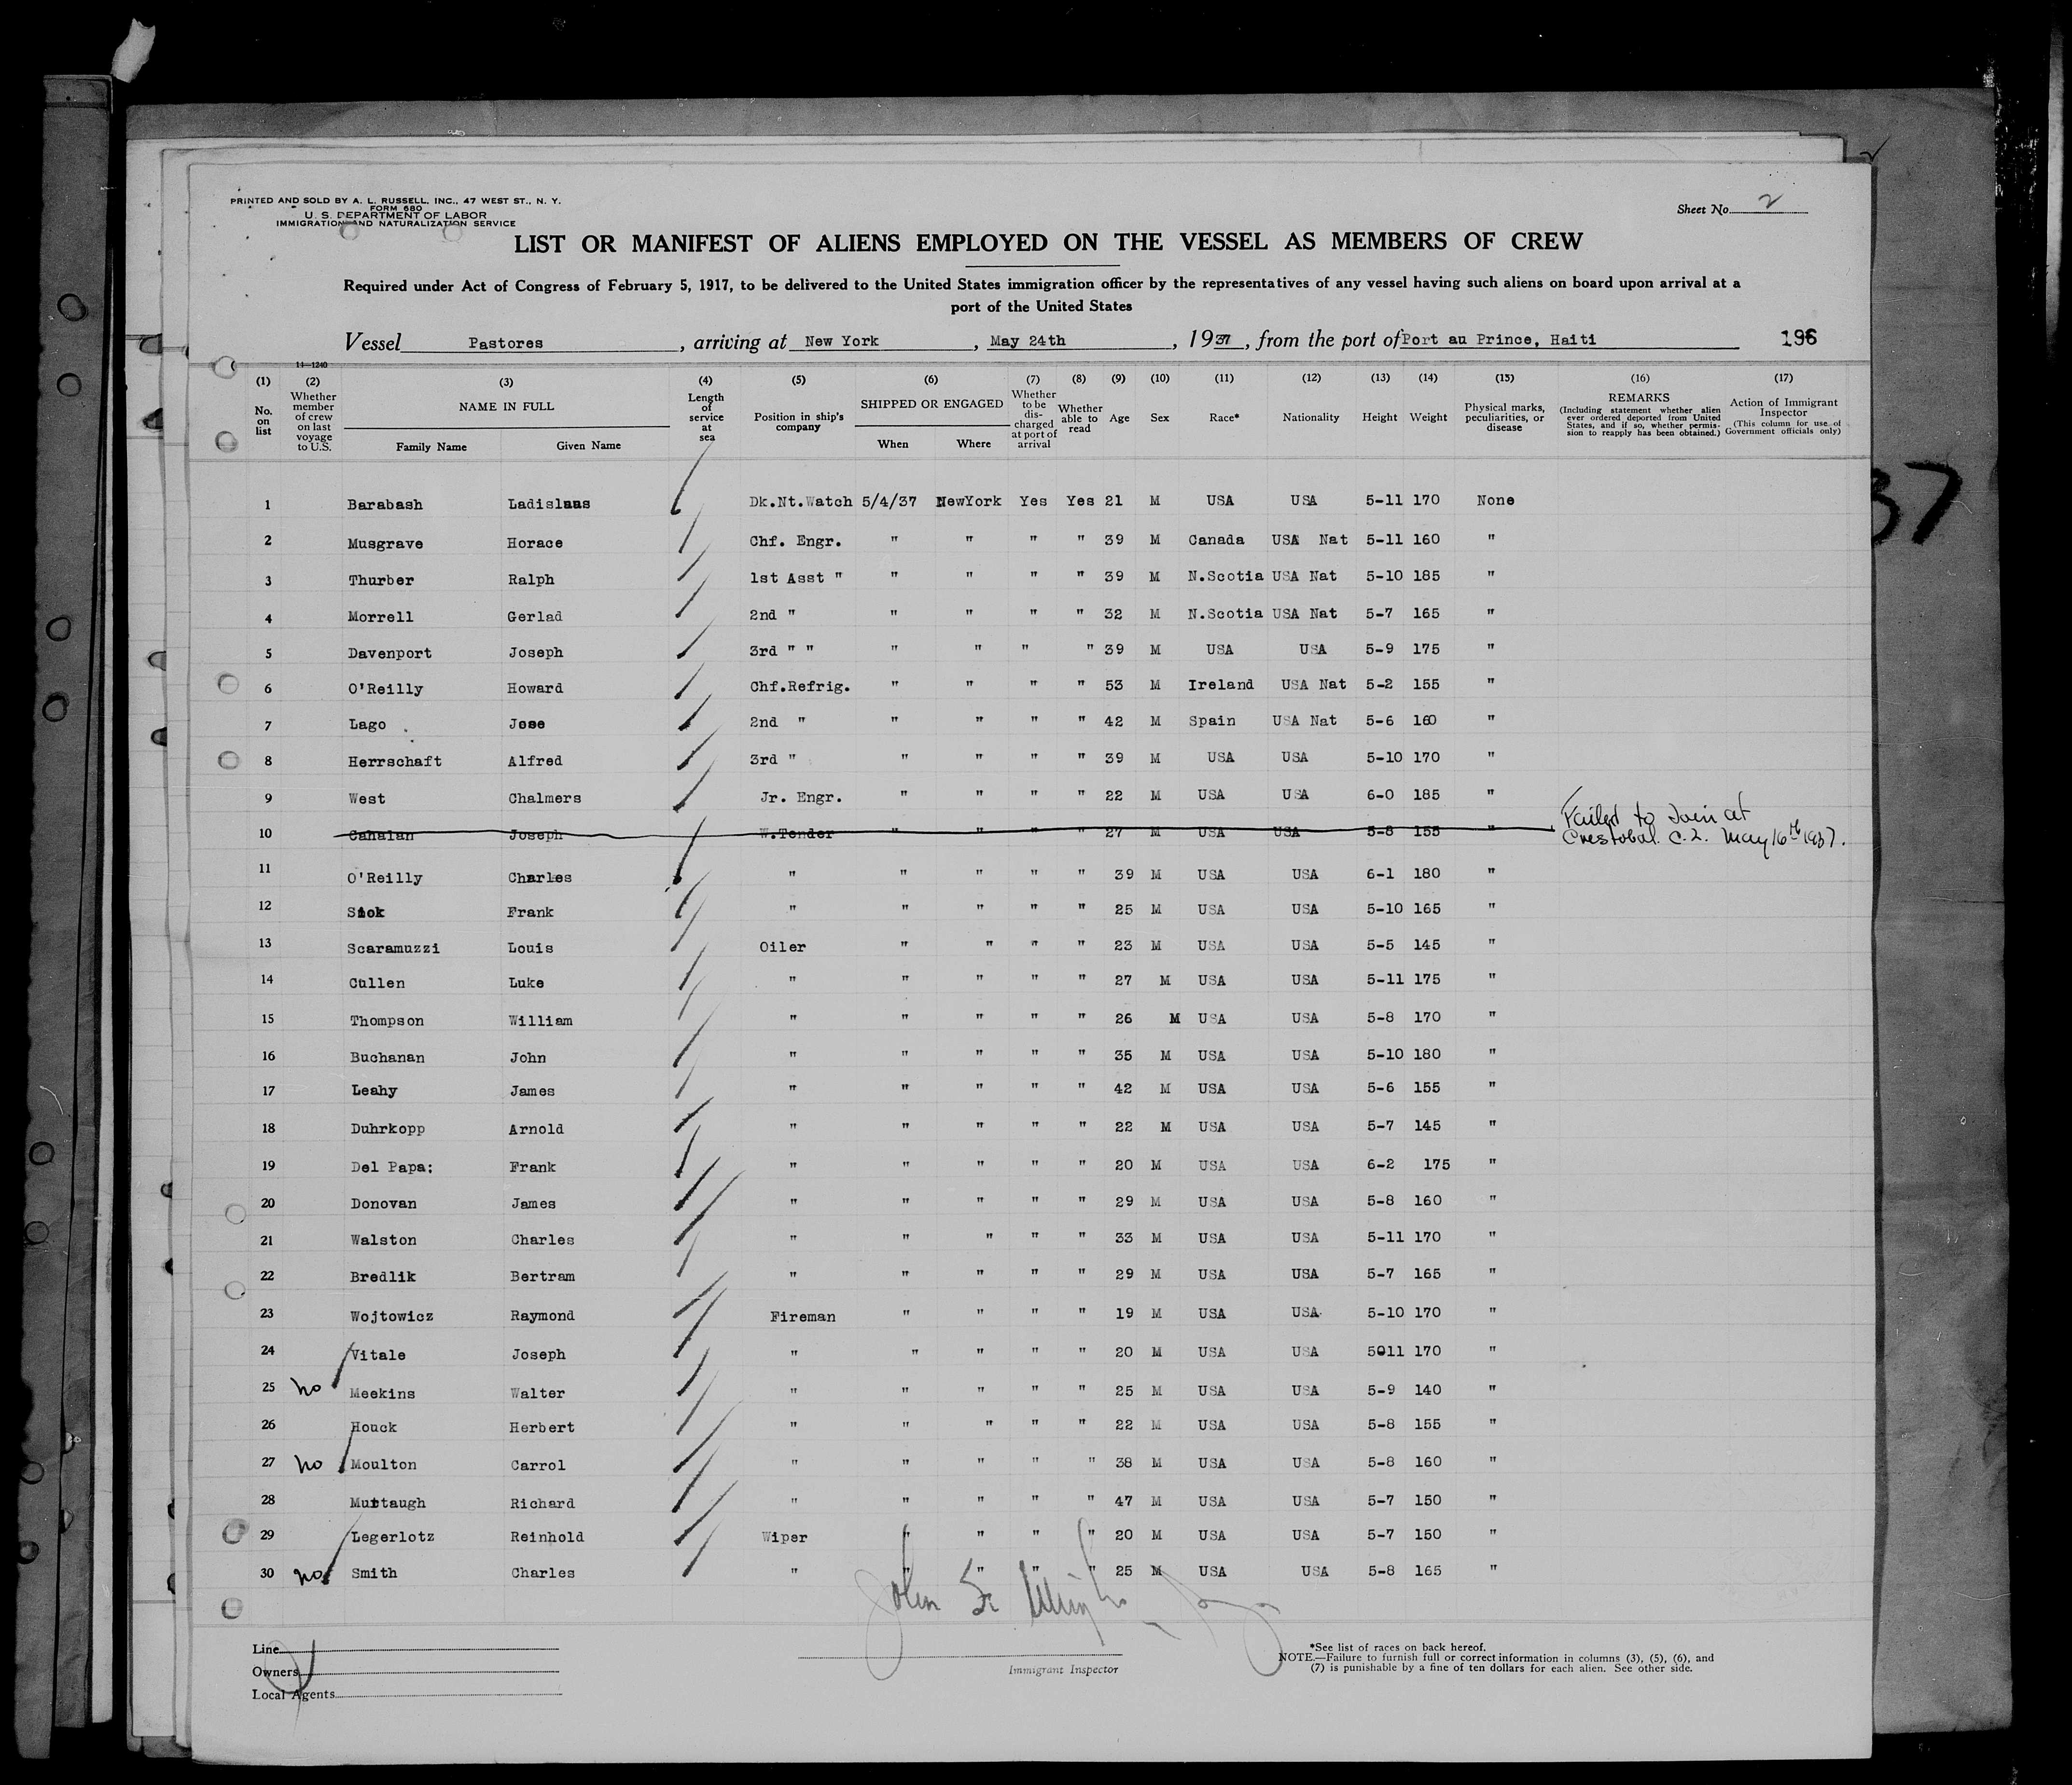 PRINTED AND SOLD BY A. L. RUSSELL, INC., 47 WEST ST., N. Y.
FORM 680
U. S. DEPARTMENT OF LABOR
IMMIGRATION AND NATURALIZATION SERVICE
Sheet No. 2
LIST OR MANIFEST OF ALIENS EMPLOYED ON THE VESSEL AS MEMBERS OF CREW
Required under Act of Congress of February 5, 1917, to be delivered to the United States immigration officer by the representatives of any vessel having such aliens on board upon arrival at a
port of the United States
Vessel Pastores, arriving at New York, May 24th, 1937, from the port of Port au Prince, Haiti 196
14—1240
(1) No. on list
(2) Whether member of crew on last voyage to U.S.
(3) NAME IN FULL Family Name Given Name
(4) Length of service at sea
(5) Position in ship's company
(6) SHIPPED OR ENGAGED When Where
(7) Whether to be discharged at port of arrival
(8) Whether able to read
(9) Age
(10) Sex
(11) Race*
(12) Nationality
(13) Height
(14) Weight
(15) Physical marks, peculiarities, or disease
(16) REMARKS (Including statement whether alien ever ordered deported from United States, and if so, whether permission to reapply has been obtained.)
(17) Action of Immigrant Inspector (This column for use of Government officials only)
1 Barabash Ladislaas Dk.Nt.Watch 5/4/37 NewYork Yes Yes 21 M USA USA 5-11 170 None
2 Musgrave Horace Chf. Engr. " " " " 39 M Canada USA Nat 5-11 160 "
3 Thurber Ralph 1st Asst " " " " " 39 M N.Scotia USA Nat 5-10 185 "
4 Morrell Gerlad 2nd " " " " " 32 M N.Scotia USA Nat 5-7 165 "
5 Davenport Joseph 3rd " " " " " " 39 M USA USA 5-9 175 "
6 O'Reilly Howard Chf.Refrig. " " " " 53 M Ireland USA Nat 5-2 155 "
7 Lago Jose 2nd " " " " " 42 M Spain USA Nat 5-6 160 "
8 Herrschaft Alfred 3rd " " " " " 39 M USA USA 5-10 170 "
9 West Chalmers Jr. Engr. " " " " 22 M USA USA 6-0 185 "
10 Cahalan Joseph W.Tender " " " " 27 M USA USA 5-8 155 " Failed to Join at
Crestobal. C.Z. May 16th 1937.
11 O'Reilly Charles " " " " " 39 M USA USA 6-1 180 "
12 Sick Frank " " " " " 25 M USA USA 5-10 165 "
13 Scaramuzzi Louis Oiler " " " " 23 M USA USA 5-5 145 "
14 Cullen Luke " " " " " 27 M USA USA 5-11 175 "
15 Thompson William " " " " " 26 M USA USA 5-8 170 "
16 Buchanan John " " " " " 35 M USA USA 5-10 180 "
17 Leahy James " " " " " 42 M USA USA 5-6 155 "
18 Duhrkopp Arnold " " " " " 22 M USA USA 5-7 145 "
19 Del Papa; Frank " " " " " 20 M USA USA 6-2 175 "
20 Donovan James " " " " " 29 M USA USA 5-8 160 "
21 Walston Charles " " " " " 33 M USA USA 5-11 170 "
22 Bredlik Bertram " " " " " 29 M USA USA 5-7 165 "
23 Wojtowicz Raymond Fireman " " " " 19 M USA USA 5-10 170 "
24 Vitale Joseph " " " " " 20 M USA USA 5011 170 "
25 no Meekins Walter " " " " " 25 M USA USA 5-9 140 "
26 Houck Herbert " " " " " 22 M USA USA 5-8 155 "
27 no Moulton Carrol " " " " " 38 M USA USA 5-8 160 "
28 Murtaugh Richard " " " " " 47 M USA USA 5-7 150 "
29 Legerlotz Reinhold Wiper " " " " 20 M USA USA 5-7 150 "
30 no Smith Charles " " " " " 25 M USA USA 5-8 165 "
John
Line
Owners
Local Agents
Immigrant Inspector
*See list of races on back hereof.
NOTE.—Failure to furnish full or correct information in columns (3), (5), (6), and
(7) is punishable by a fine of ten dollars for each alien. See other side.
37